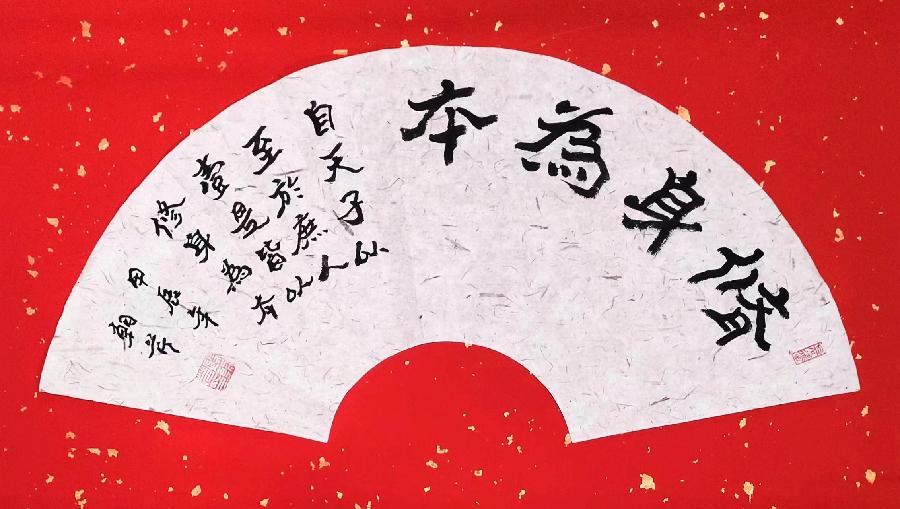 脩身為本
自天子以
至於庶人
壹是皆以
修身為本
甲辰年
朝